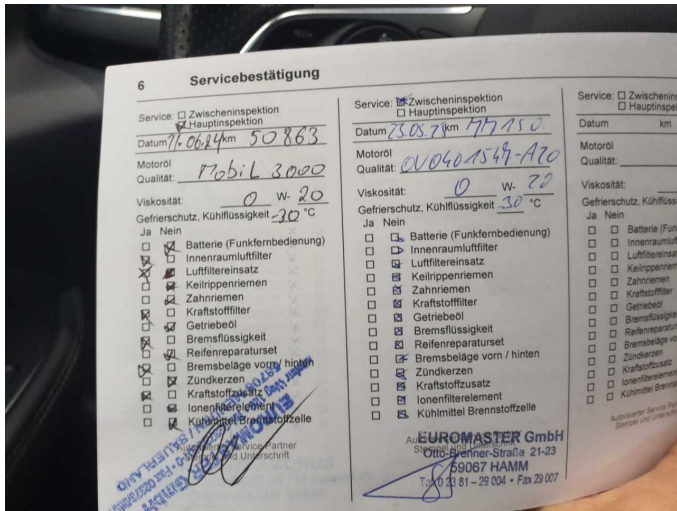 6 Servicebestätigung
Service: Zwischeninspektion
Hauptinspektion
Datum 11.06.24 km 50863
Motoröl
Qualität: Mobil 3000
Viskosität: 0 W- 20
Gefrierschutz, Kühlflüssigkeit -30 °C
Ja Nein
Batterie (Funkfernbedienung)
Innenraumluftfilter
Luftfiltereinsatz
Keilrippenriemen
Zahnriemen
Kraftstofffilter
Getriebeöl
Bremsflüssigkeit
Reifenreparaturset
Bremsbeläge vorn / hinten
Zündkerzen
Kraftstoffzusatz
Ionenfilterelement
Kühlmittel Brennstoffzelle
Service-Partner
und Unterschrift
EUROMASTER GmbH
Service: Zwischeninspektion
Hauptinspektion
Datum 23.05. km 77150
Motoröl
Qualität:
Viskosität: 0 W- 20
Gefrierschutz, Kühlflüssigkeit -30 °C
Ja Nein
Batterie (Funkfernbedienung)
Innenraumluftfilter
Luftfiltereinsatz
Keilrippenriemen
Zahnriemen
Kraftstofffilter
Getriebeöl
Bremsflüssigkeit
Reifenreparaturset
Bremsbeläge vorn / hinten
Zündkerzen
Kraftstoffzusatz
Ionenfilterelement
Kühlmittel Brennstoffzelle
EUROMASTER GmbH
Otto-Brenner-Straße 21-23
59067 HAMM
Tel. 0 23 81 – 29 004 • Fax 29 007
Service: Zwischeninspektion
Hauptinspe
Datum km
Motoröl
Qualität:
Viskosität:
Gefrierschutz, Kühlflüss
Ja Nein
Batterie (Fun
Innenraumluft
Luftfiltereinsa
Keilrippenriem
Zahnriemen
Kraftstofffilte
Getriebeöl
Bremsflüssigke
Reifenreparatur
Bremsbeläge vo
Zündkerzen
Kraftstoffzusatz
Ionenfilterelemen
Kühlmittel Brenns
Autorisierter Service Pa
Stempel und Unterschr